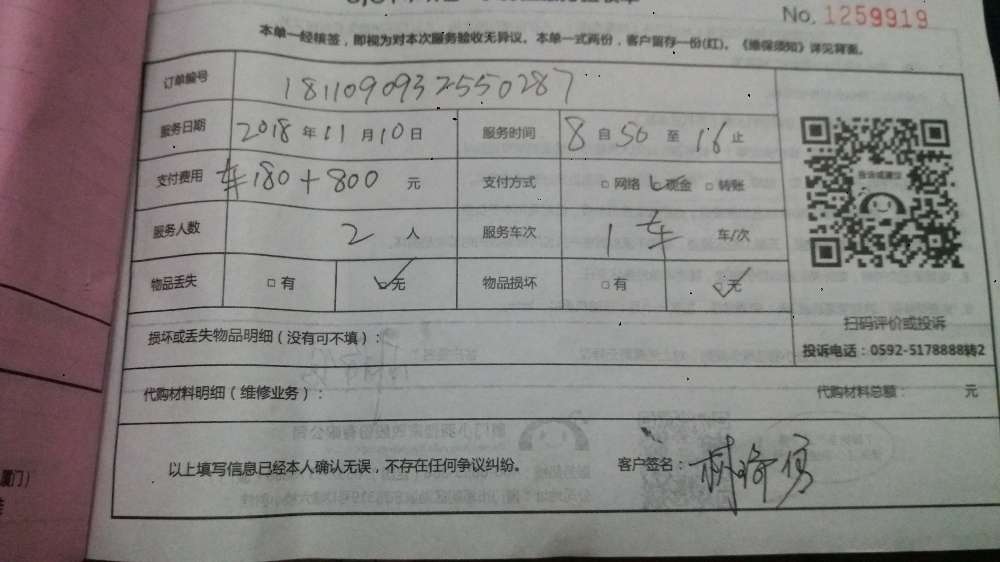 No. 1259919
本单一经核签，即视为对本次服务验收无异议。本单一式两份，客户留存一份(红)。《维保须知》详见背面。
订单编号 181109093255 0287
服务日期 2018 年 11 月 10 日 服务时间 8 自 50 至 16 止
支付费用 车180+800 元 支付方式 □ 网络 □ 现金 □ 转账
服务人数 2 人 服务车次 1车 车/次
物品丢失 □ 有 □ 无 物品损坏 □ 有 □ 无
投诉或建议
损坏或丢失物品明细（没有可不填）：
扫码评价或投诉
投诉电话：0592-5178888转2
代购材料明细（维修业务）： 代购材料总额： 元
以上填写信息已经本人确认无误，不存在任何争议纠纷。 客户签名：
厦门）